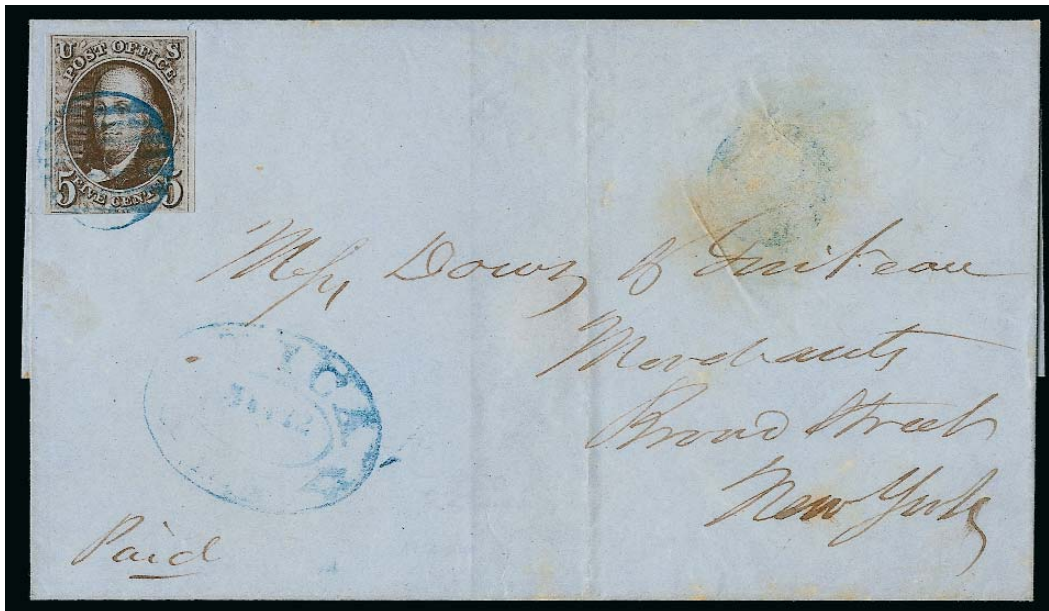 U S
POST OFFICE
5 FIVE CENTS 5
Mess Dows & Guiteau
Merchants
Broad Street
New York
Paid